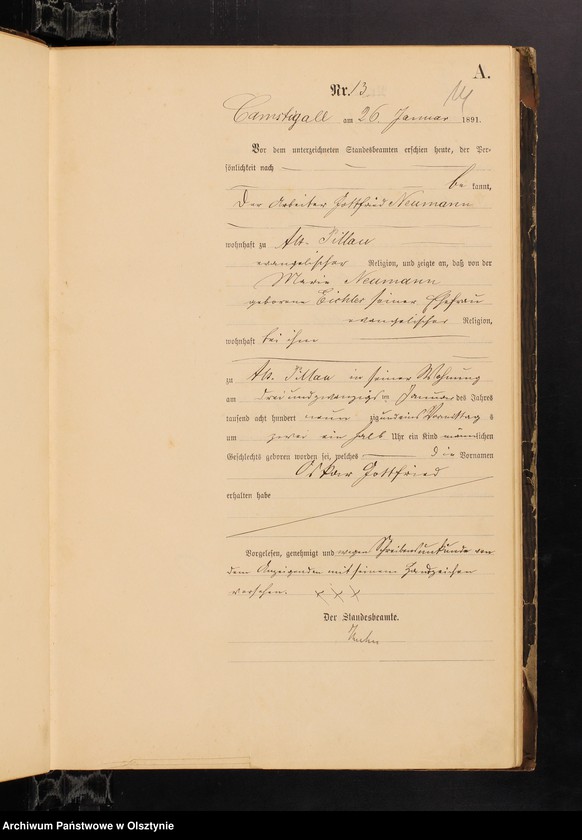 A.
Nr. 13
Camstigall am 26. Januar 1891.
Vor dem unterzeichneten Standesbeamten erschien heute, der Per-
sönlichkeit nach
be kannt,
Der Arbeiter Gottfried Neumann
wohnhaft zu Alt-Pillau
evangelischer Religion, und zeigte an, daß von der
Marie Neumann
geborene Eichler seiner Ehefrau
evangelischer Religion,
wohnhaft bei ihm
zu Alt-Pillau in seiner Wohnung
am dreiundzwanzigsten Januar des Jahres
tausend acht hundert neunzig und eins Vormittags
um zwei ein halb Uhr ein Kind männlichen
Geschlechts geboren worden sei, welches die Vornamen
Oskar Gottfried
erhalten habe
Vorgelesen, genehmigt und wegen Schreibensunkunde von
dem Anzeigenden mit seinem Handzeichen
versehen. × × ×
Der Standesbeamte.
Archiwum Państwowe w Olsztynie